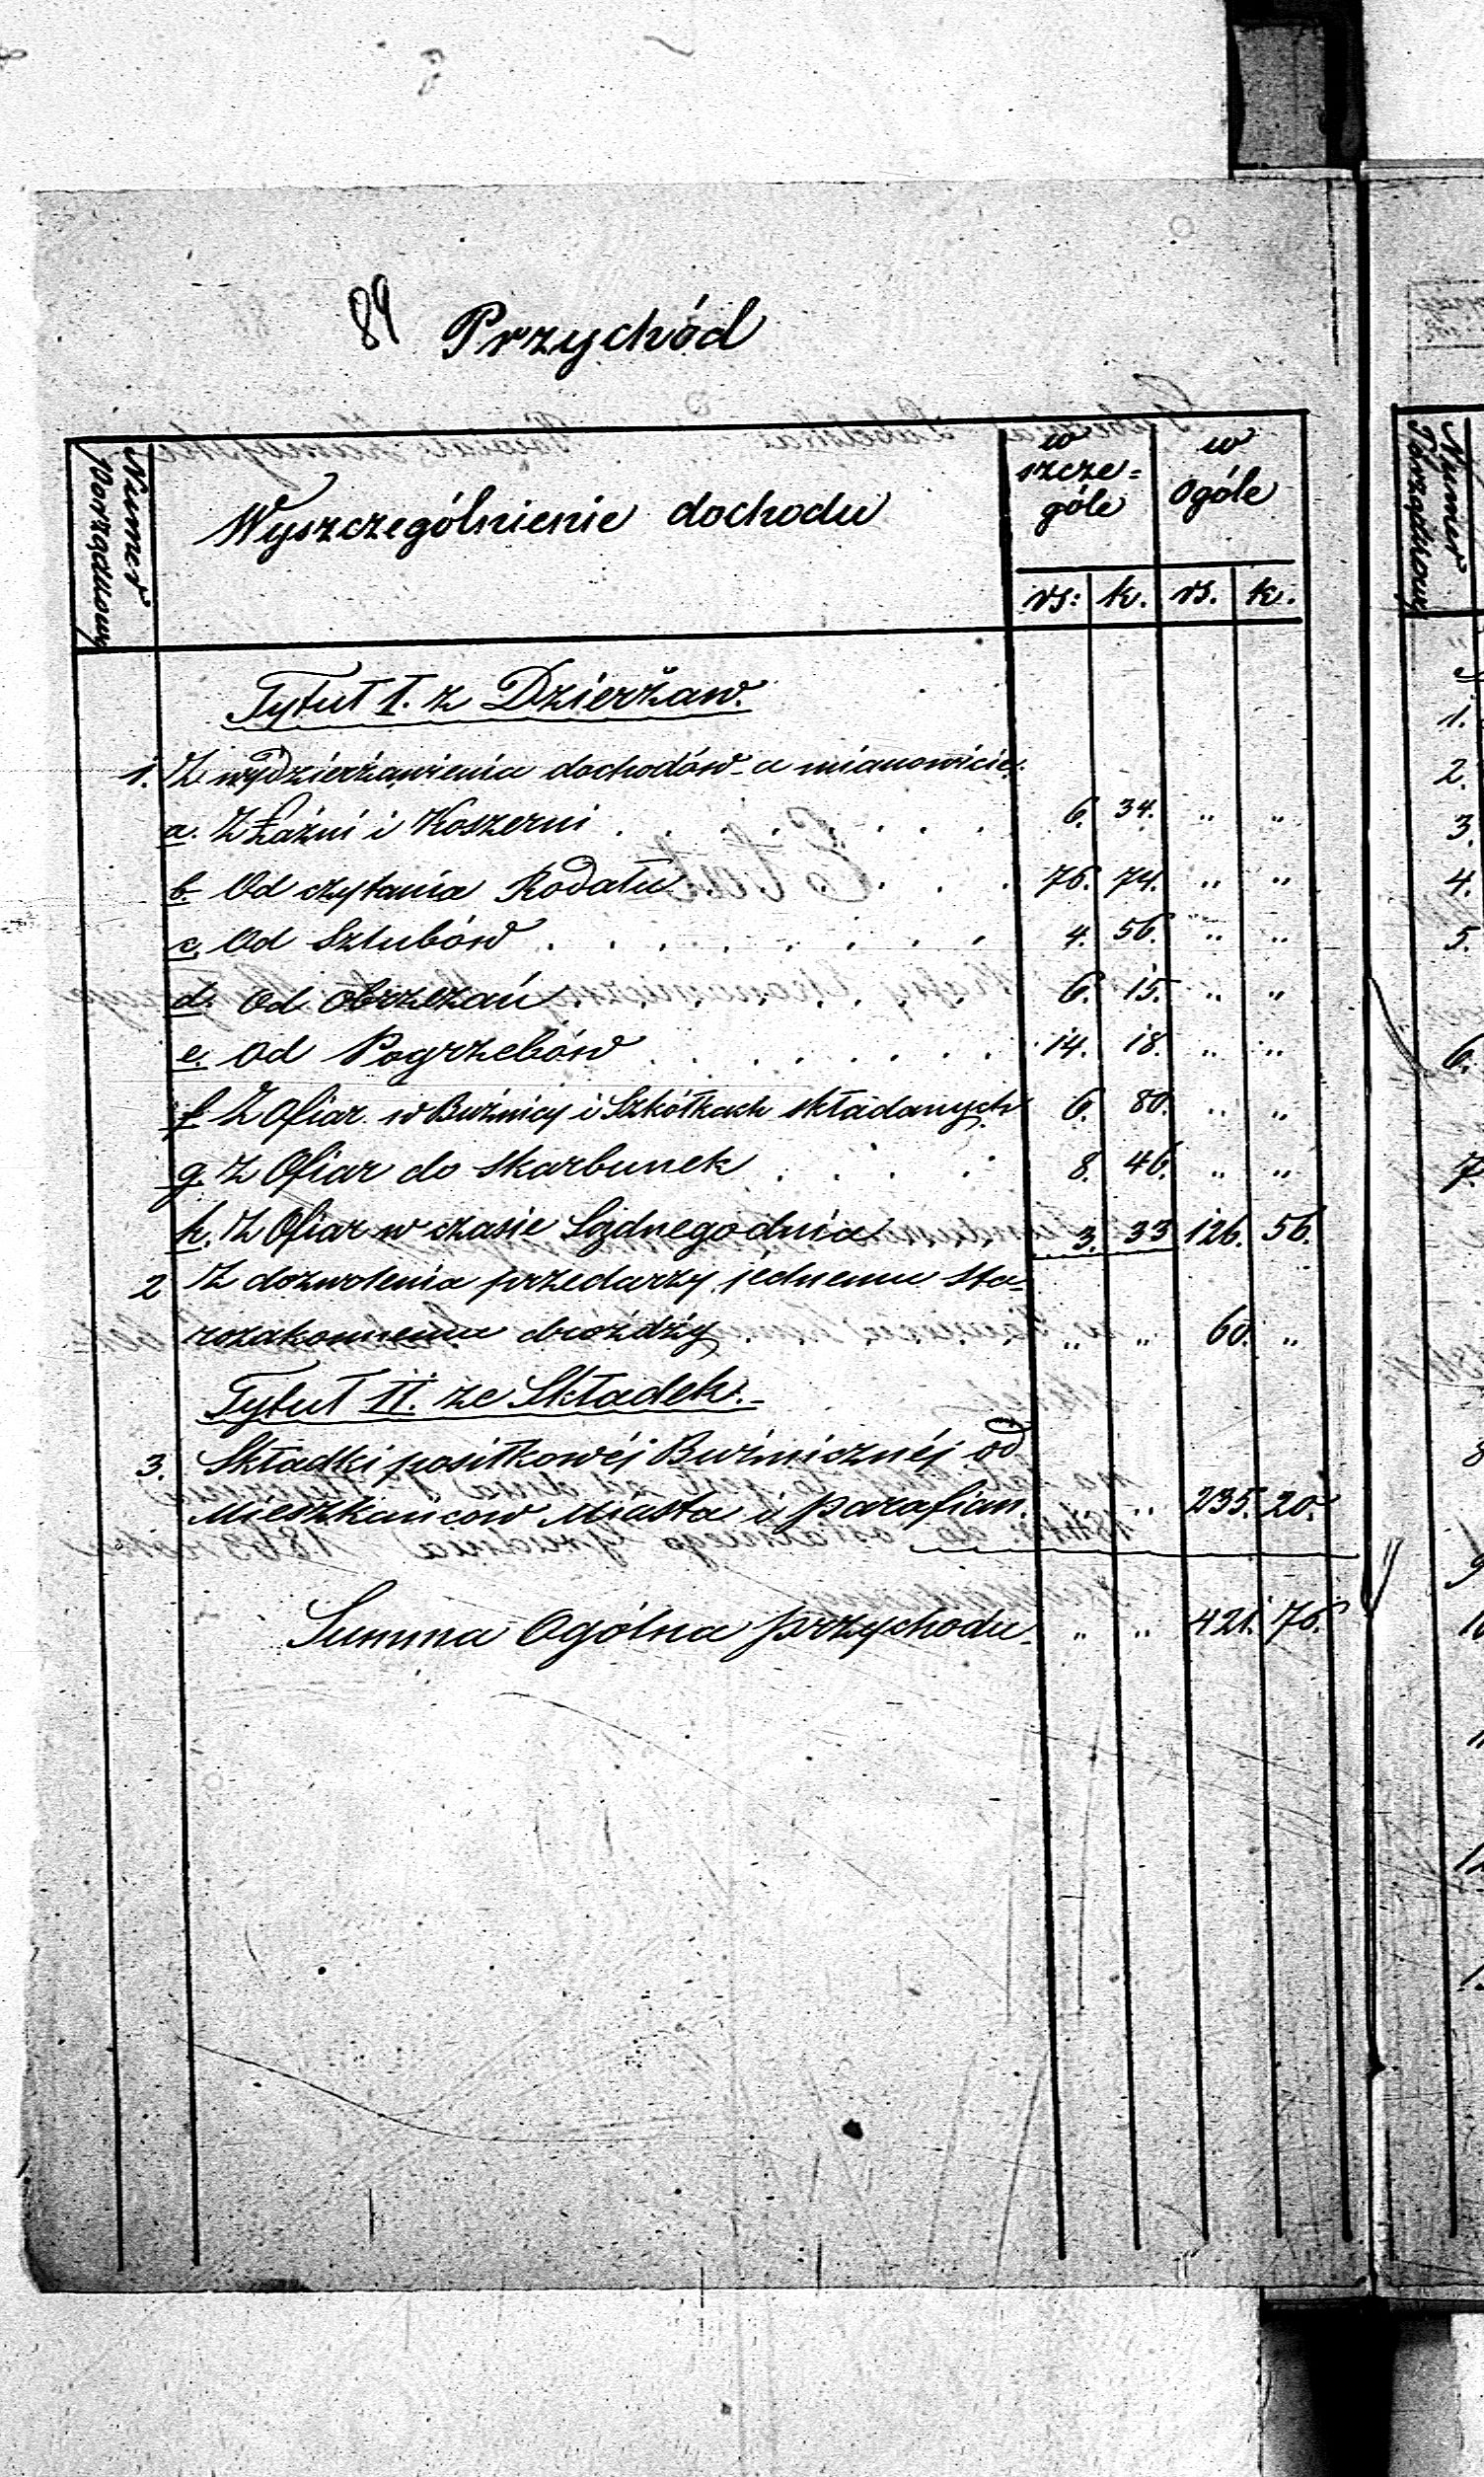 89 Przychód
Numer Porządkowy
Wyszczególnienie dochodu
w szcze= góle
w Ogóle
rs: k. rs. k.
Tytuł I. z Dzierżaw.
1. Z wydzierżawienia dochodów a mianowicie:
a. Z Łaźni i Koszerni . . . . . . . 6. 34. " "
b. Od czytania Rodału . . . 76. 74. " "
c. Od Szlubów . . . . . . . . 4. 56. " "
d. Od Obrzezań . . . . . . . 6. 15. " "
e. Od Pogrzebów . . . . . . . 14. 18. " "
f. Z Ofiar w Bużnicy i Szkółkach składanych 6. 80. " "
g. Z Ofiar do skarbunek . . . . 8. 46. " "
h. Z Ofiar w czasie Sądnego dnia 3. 33 126. 56.
2 Z dozwolenia przedarzy jednemu sta=
rozakonnemu drożdży " " 60. "
Tytuł II. ze Składek.
3. Składki posiłkowéj Bużnicznéj od
Mieszkańcow Miasta i parafian. " 235. 20.
Summa Ogólna przychodu. " " 421. 76.
Numer Porządkowy
1.
2.
3.
4.
5.
6.
7.
8
9